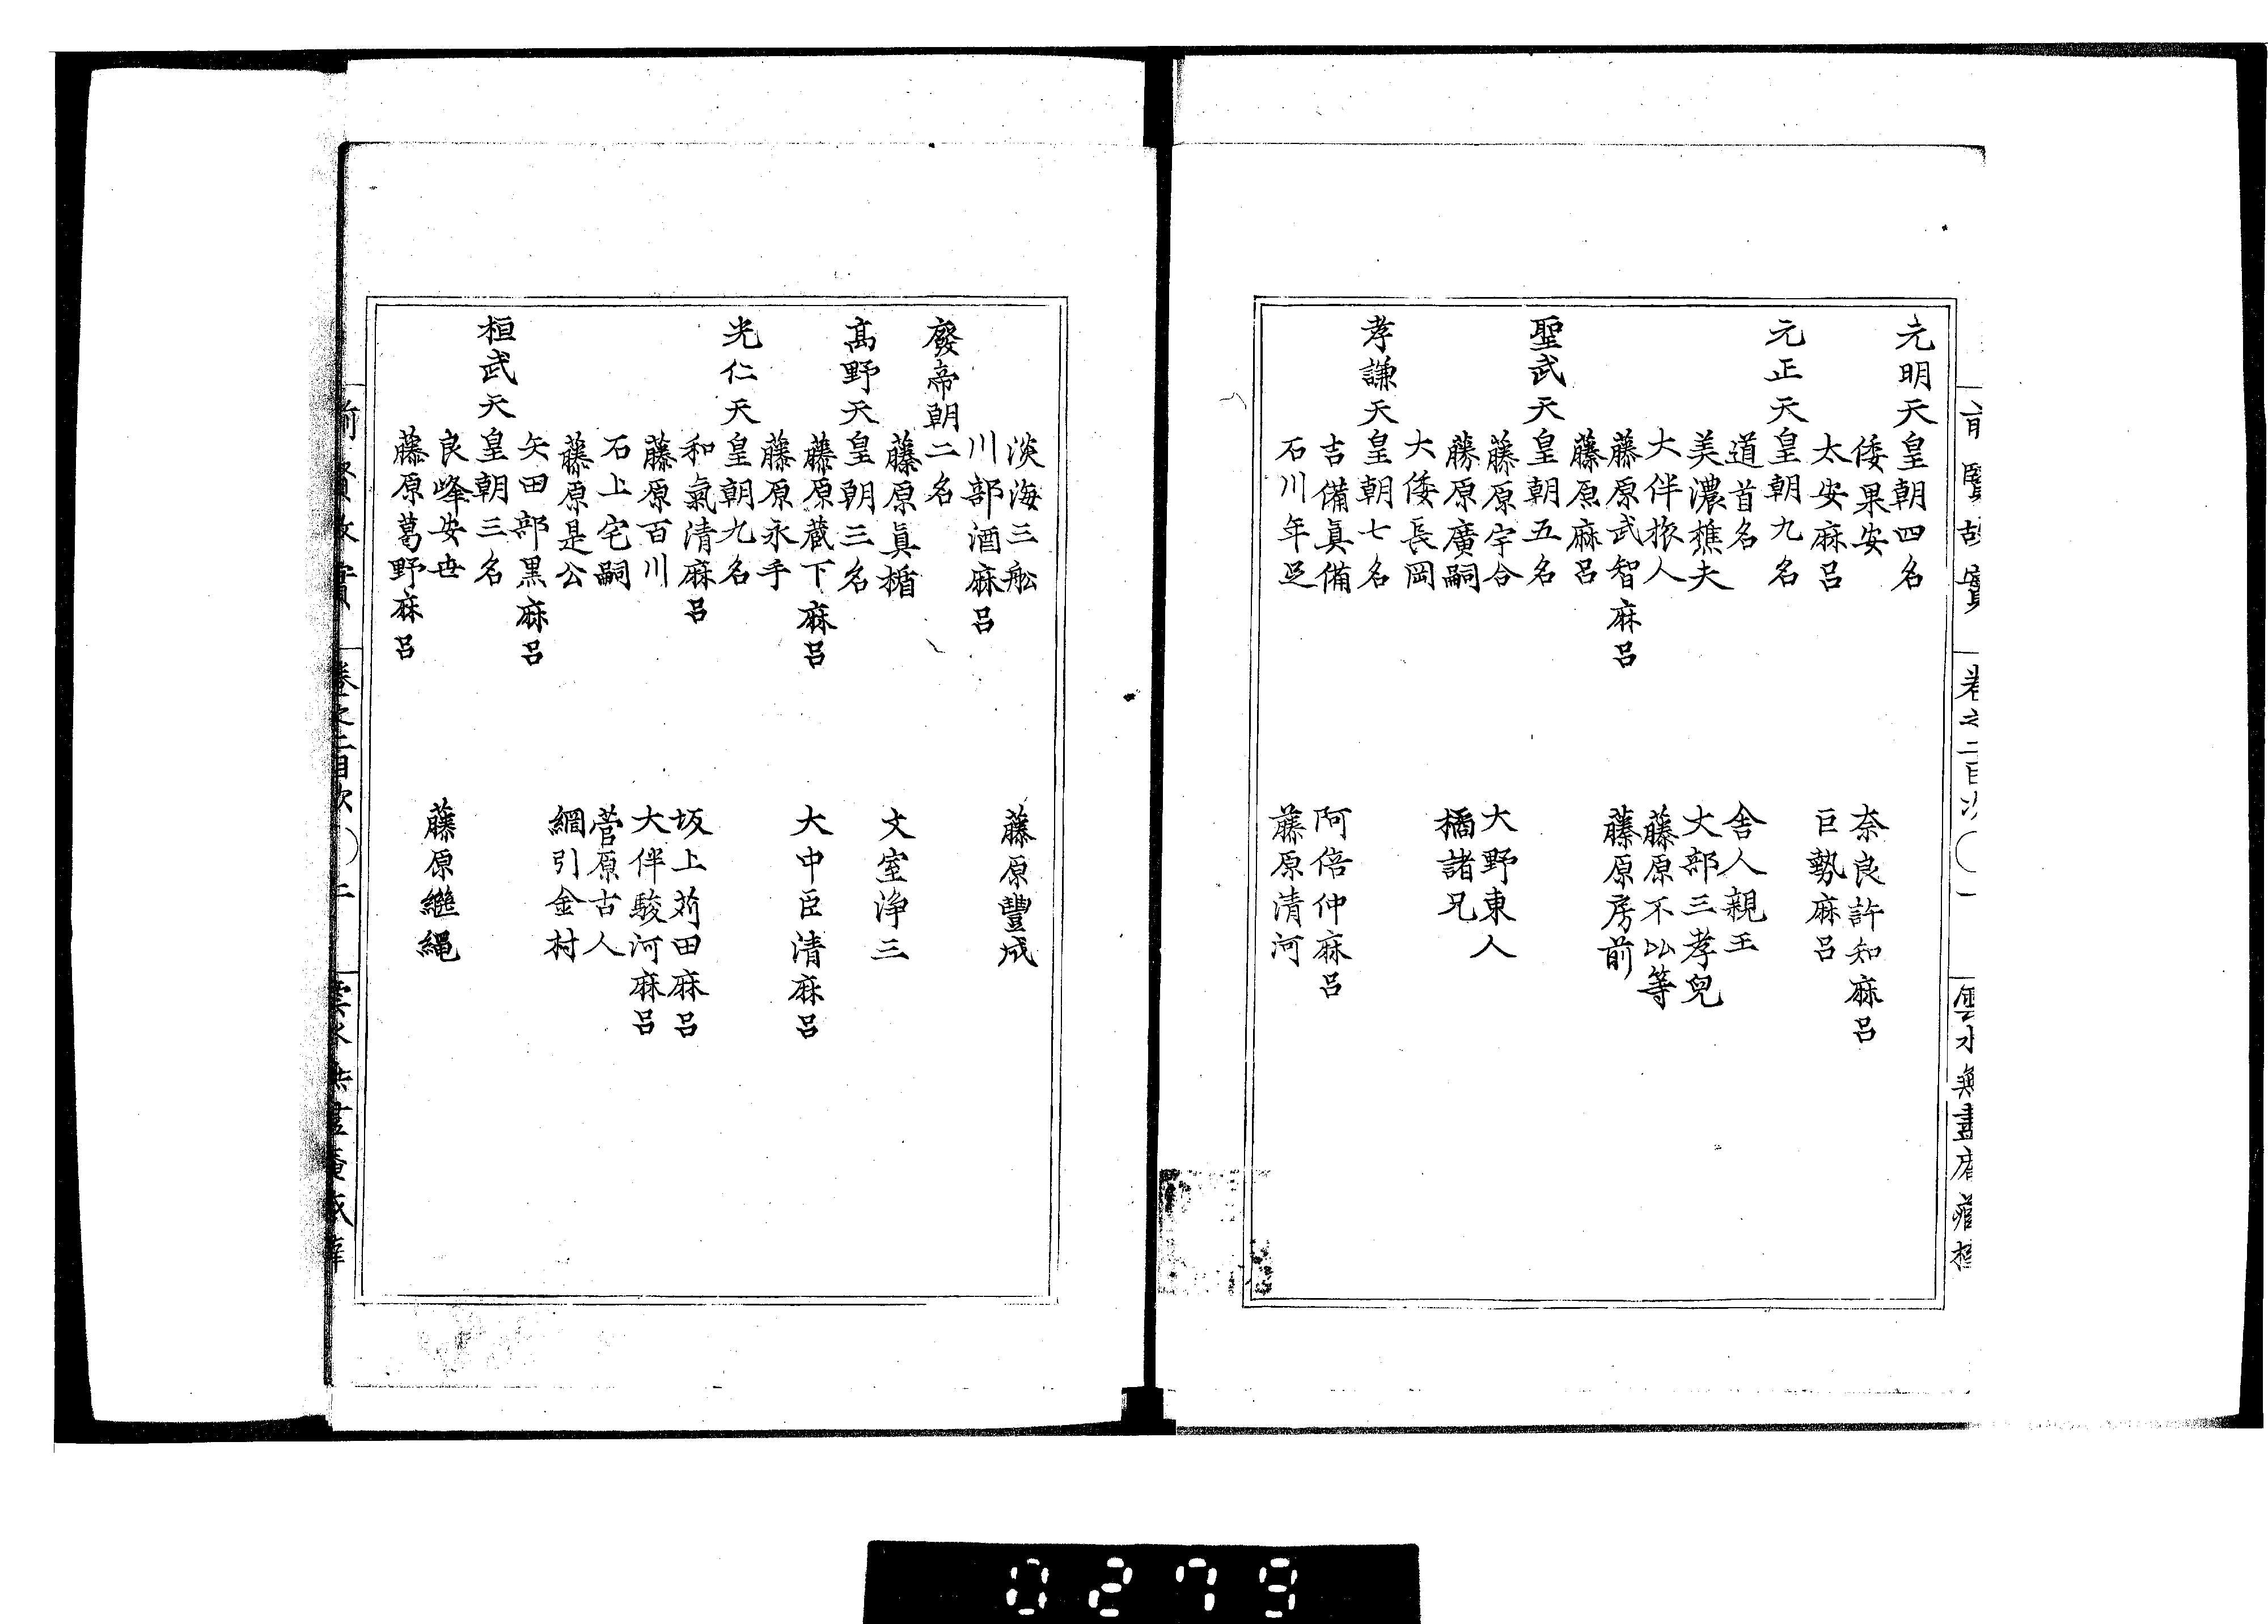 元明天皇朝四名
倭果安
奈良許知麻呂
太安麻呂
巨勢麻呂
元正天皇朝九名
道首名
舎人親王
美濃樵夫
丈部三孝兒
大伴旅人
藤原不比等
藤原武智麻呂
藤原房前
藤原麻呂
聖武天皇朝五名
藤原宇合
大野東人
藤原廣嗣
橘諸兄
大倭長岡
孝謙天皇朝七名
吉備真備
阿倍仲麻呂
石川年足
藤原清河
淡海三舩
藤原豐成
川部酒麻呂
廢帝朝二名
藤原真楯
文室浄三
髙野天皇朝三名
藤原蔵下麻呂
大中臣清麻呂
藤原永手
光仁天皇朝九名
和氣清麻呂
坂上苅田麻呂
藤原百川
大伴駿河麻呂
石上宅嗣
菅原古人
藤原是公
綱引金村
矢田部黒麻呂
桓武天皇朝三名
良峰安世
藤原繼縄
藤原葛野麻呂
0279